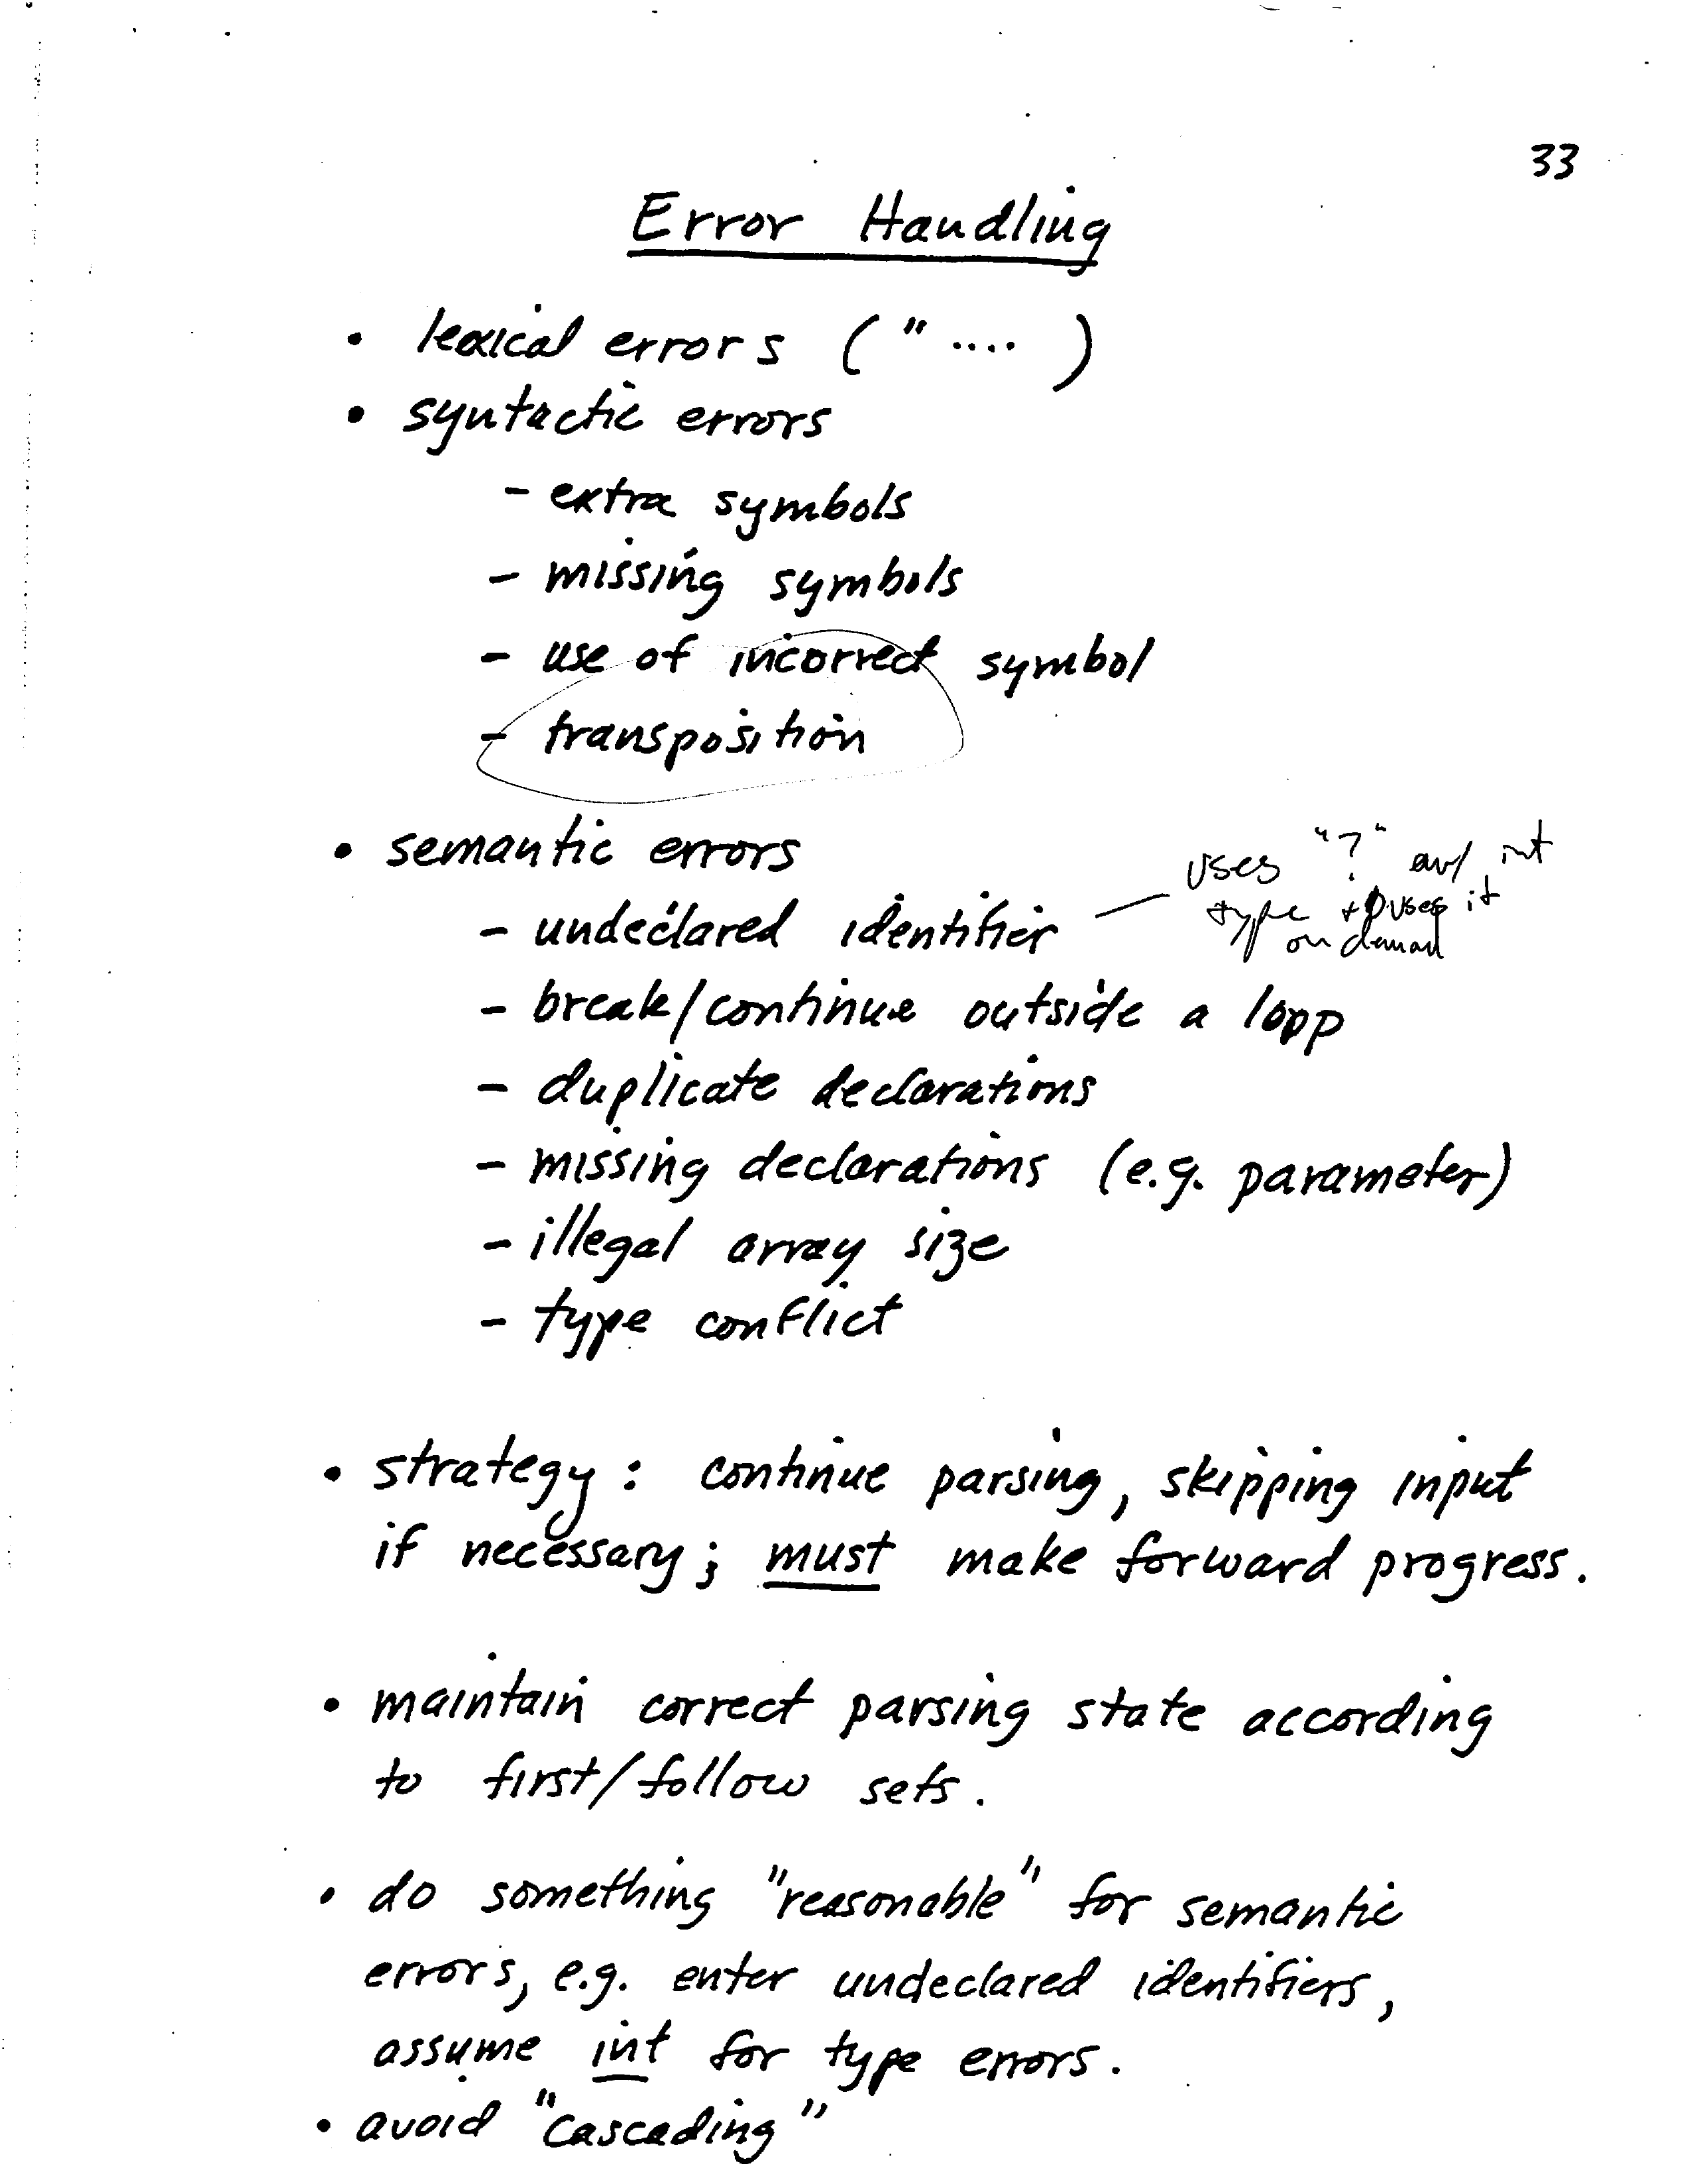 33
Error Handling
• lexical errors ( " .... )
• syntactic errors
- extra symbols
- missing symbols
- use of incorrect symbol
- transposition
• semantic errors
uses "?" int
- undeclared identifier — type uses it
on demand
- break/continue outside a loop
- duplicate declarations
- missing declarations (e.g. parameter)
- illegal array size
- type conflict
• strategy : continue parsing, skipping input
if necessary ; must make forward progress.
• maintain correct parsing state according
to first/follow sets.
• do something "reasonable" for semantic
errors, e.g. enter undeclared identifiers,
assume int for type errors.
• avoid "cascading"